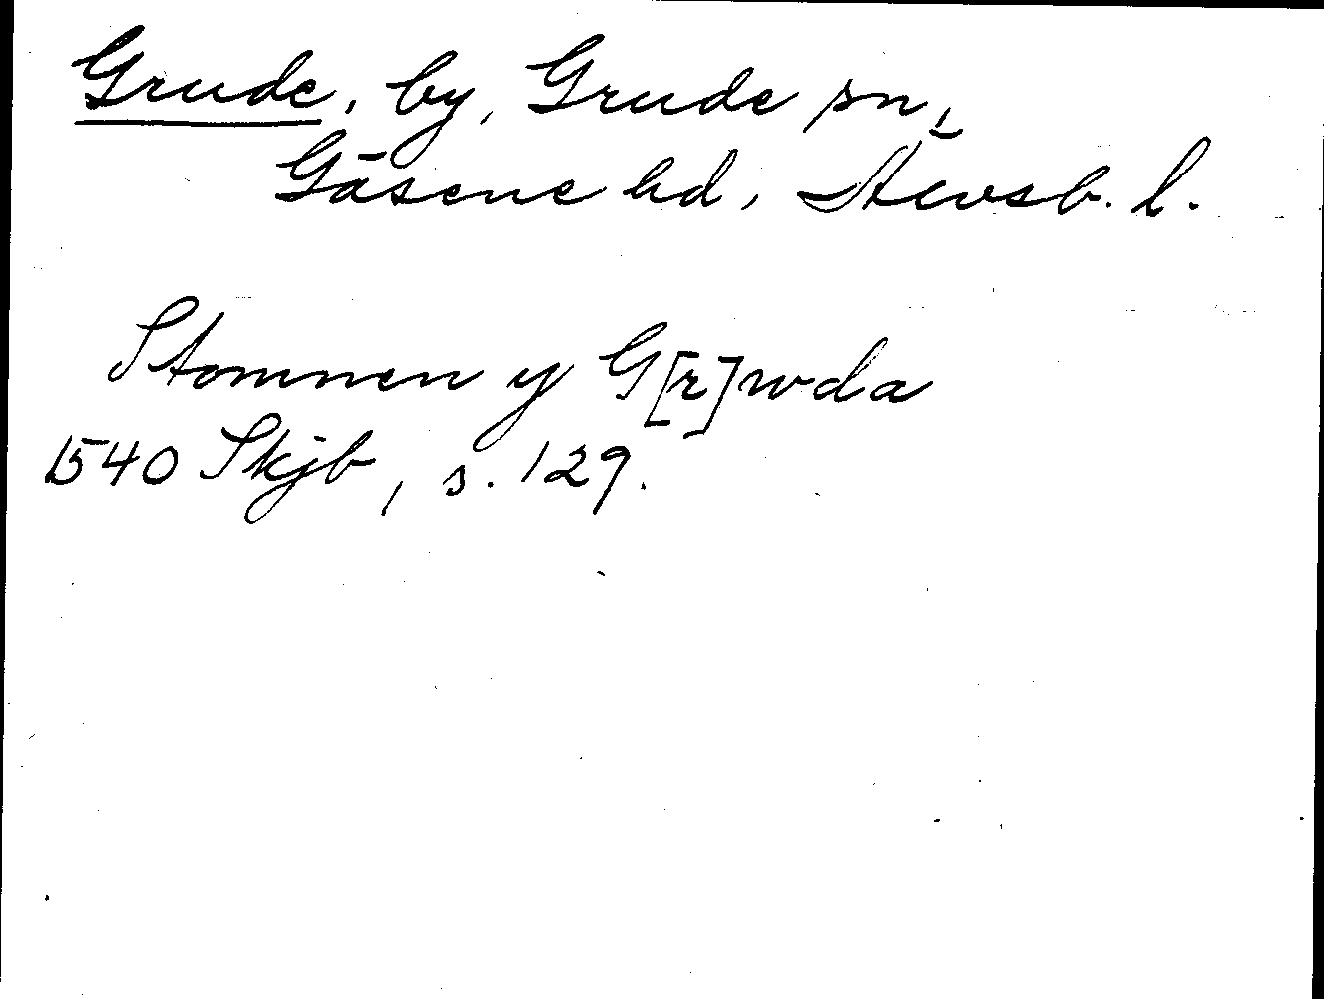 Grude, by, Grude sn,
Gäsene hd, Älvsb. l.
Stommen y G[r]wda
1540 Skjb, s. 129.